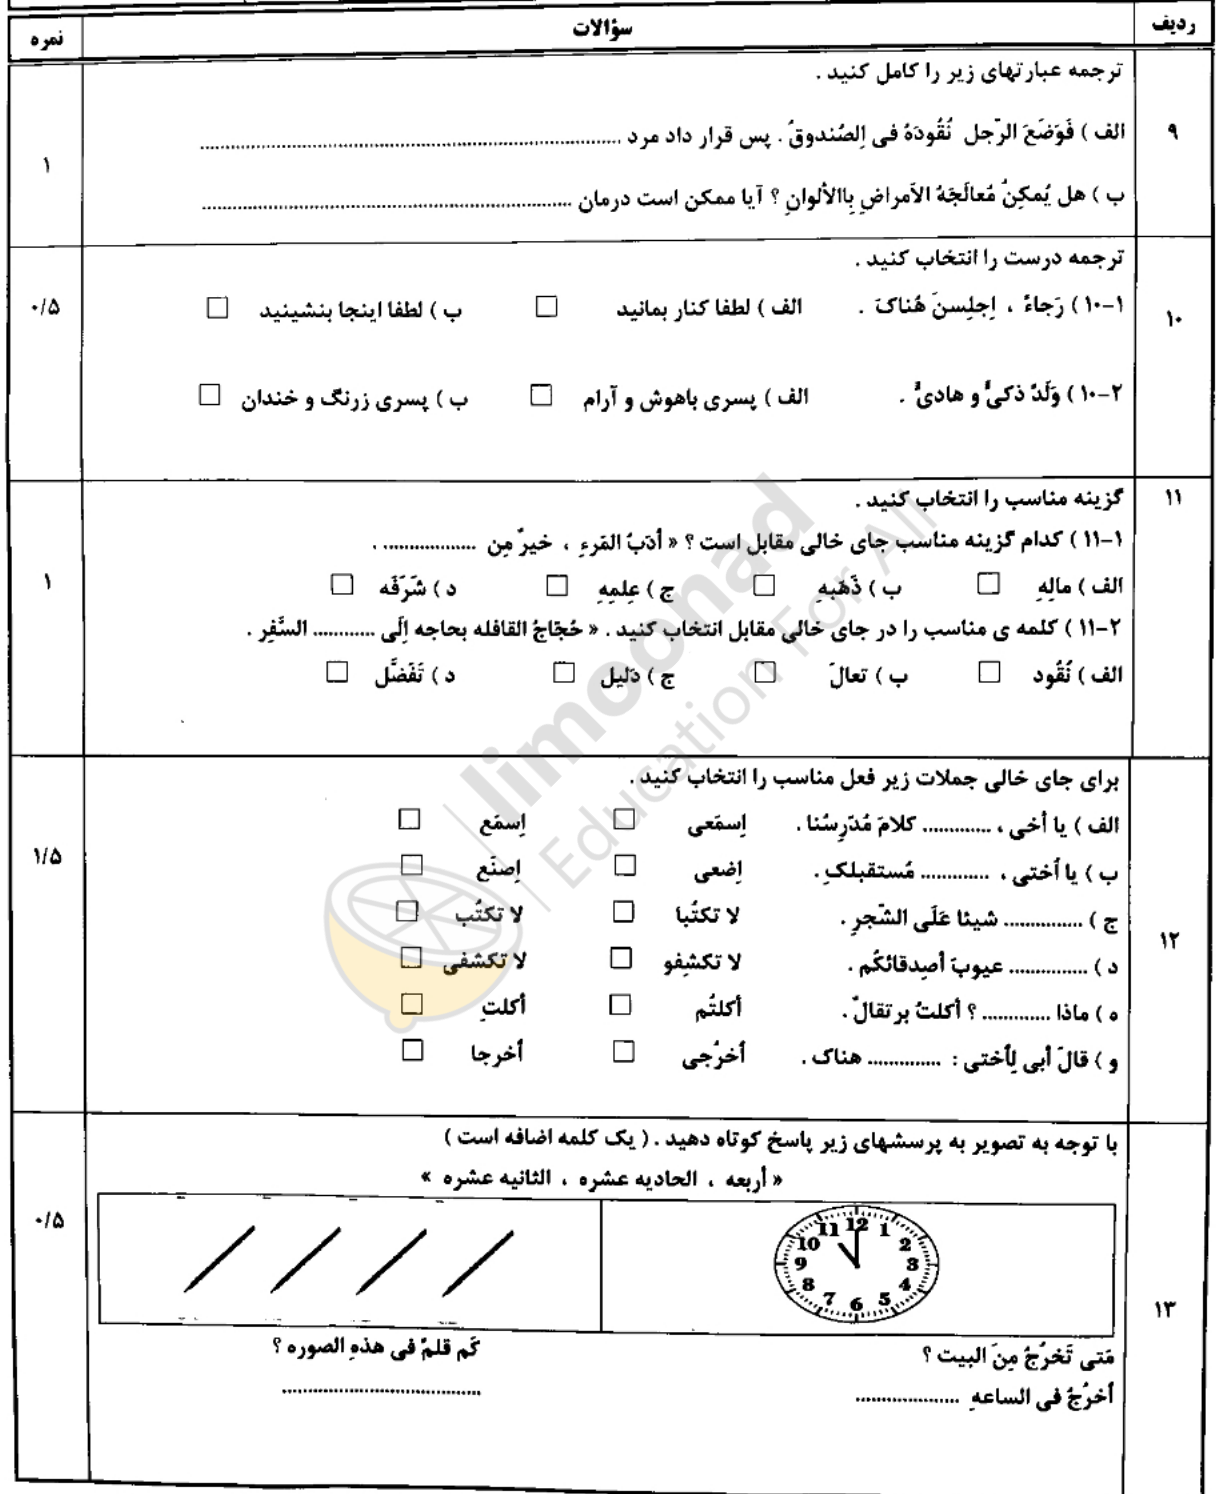 ردیف	سؤالات	نمره
ترجمه عبارتهای زیر را کامل کنید .
۹	الف ) فَوَضَعَ الرّجل نُقُودَهُ فی اِلصُندوقُ . پس قرار داد مرد ..........................................	۱
ب ) هل یُمکِنُ مُعالَجَهُ الاَمراضِ بِاالألوانِ ؟ آیا ممکن است درمان ..........................................
ترجمه درست را انتخاب کنید .
۱۰	۱-۱۰ ) رَجاءً ، اِجلِسنَ هُناکَ . الف ) لطفا کنار بمانید □ ب ) لطفا اینجا بنشینید □	۰/۵
۲-۱۰ ) وَلَدٌ ذکیٌّ و هادیٌّ . الف ) پسری باهوش و آرام □ ب ) پسری زرنگ و خندان □
۱۱	گزینه مناسب را انتخاب کنید .
۱-۱۱ ) کدام گزینه مناسب جای خالی مقابل است ؟ « أدَبُ المَرءِ ، خیرٌ مِن .................. .
الف ) مالِهِ □ ب ) ذَهَبهِ □ ج ) عِلمِهِ □ د ) شَرَفَه □	۱
۲-۱۱ ) کلمه ی مناسب را در جای خالی مقابل انتخاب کنید . « حُجّاجُ القافله بحاجه اِلَی ............ السَّفِر .
الف ) نُقُود □ ب ) تعالَ □ ج ) دَلیل □ د ) تَفَضَّل □
برای جای خالی جملات زیر فعل مناسب را انتخاب کنید .
الف ) یا أخی ، ............. کلامَ مُدَرِسُنا . اِسمَعی □ اِسمَع □
ب ) یا اُختی ، ............. مُستقبلکِ . اِضعی □ اِصنَع □	۱/۵
ج ) ............... شیئا عَلَی الشّجرِ . لا تکتُبا □ لا تکتُب □
۱۲	د ) ............... عیوبَ أصِدقائکُم . لا تکشِفو □ لا تکشفی □
ه ) ماذا ............. ؟ أکلتُ برتقالٌ . أکلتُم □ أکلتِ □
و ) قالَ أبی لِأختی : .............. هناک . اُخرُجی □ اُخرجا □
با توجه به تصویر به پرسشهای زیر پاسخ کوتاه دهید . ( یک کلمه اضافه است )
« أربعه ، الحادیه عشره ، الثانیه عشره »
۰/۵
12 1 2 3 4 5 6 7 8 9 10 11
۱۳
مَتی تَخرُجُ مِنَ البیت ؟	کَم قلمٌ فی هذهِ الصوره ؟
اُخرُجُ فی الساعهِ ....................	......................................
limoonad
Education For All